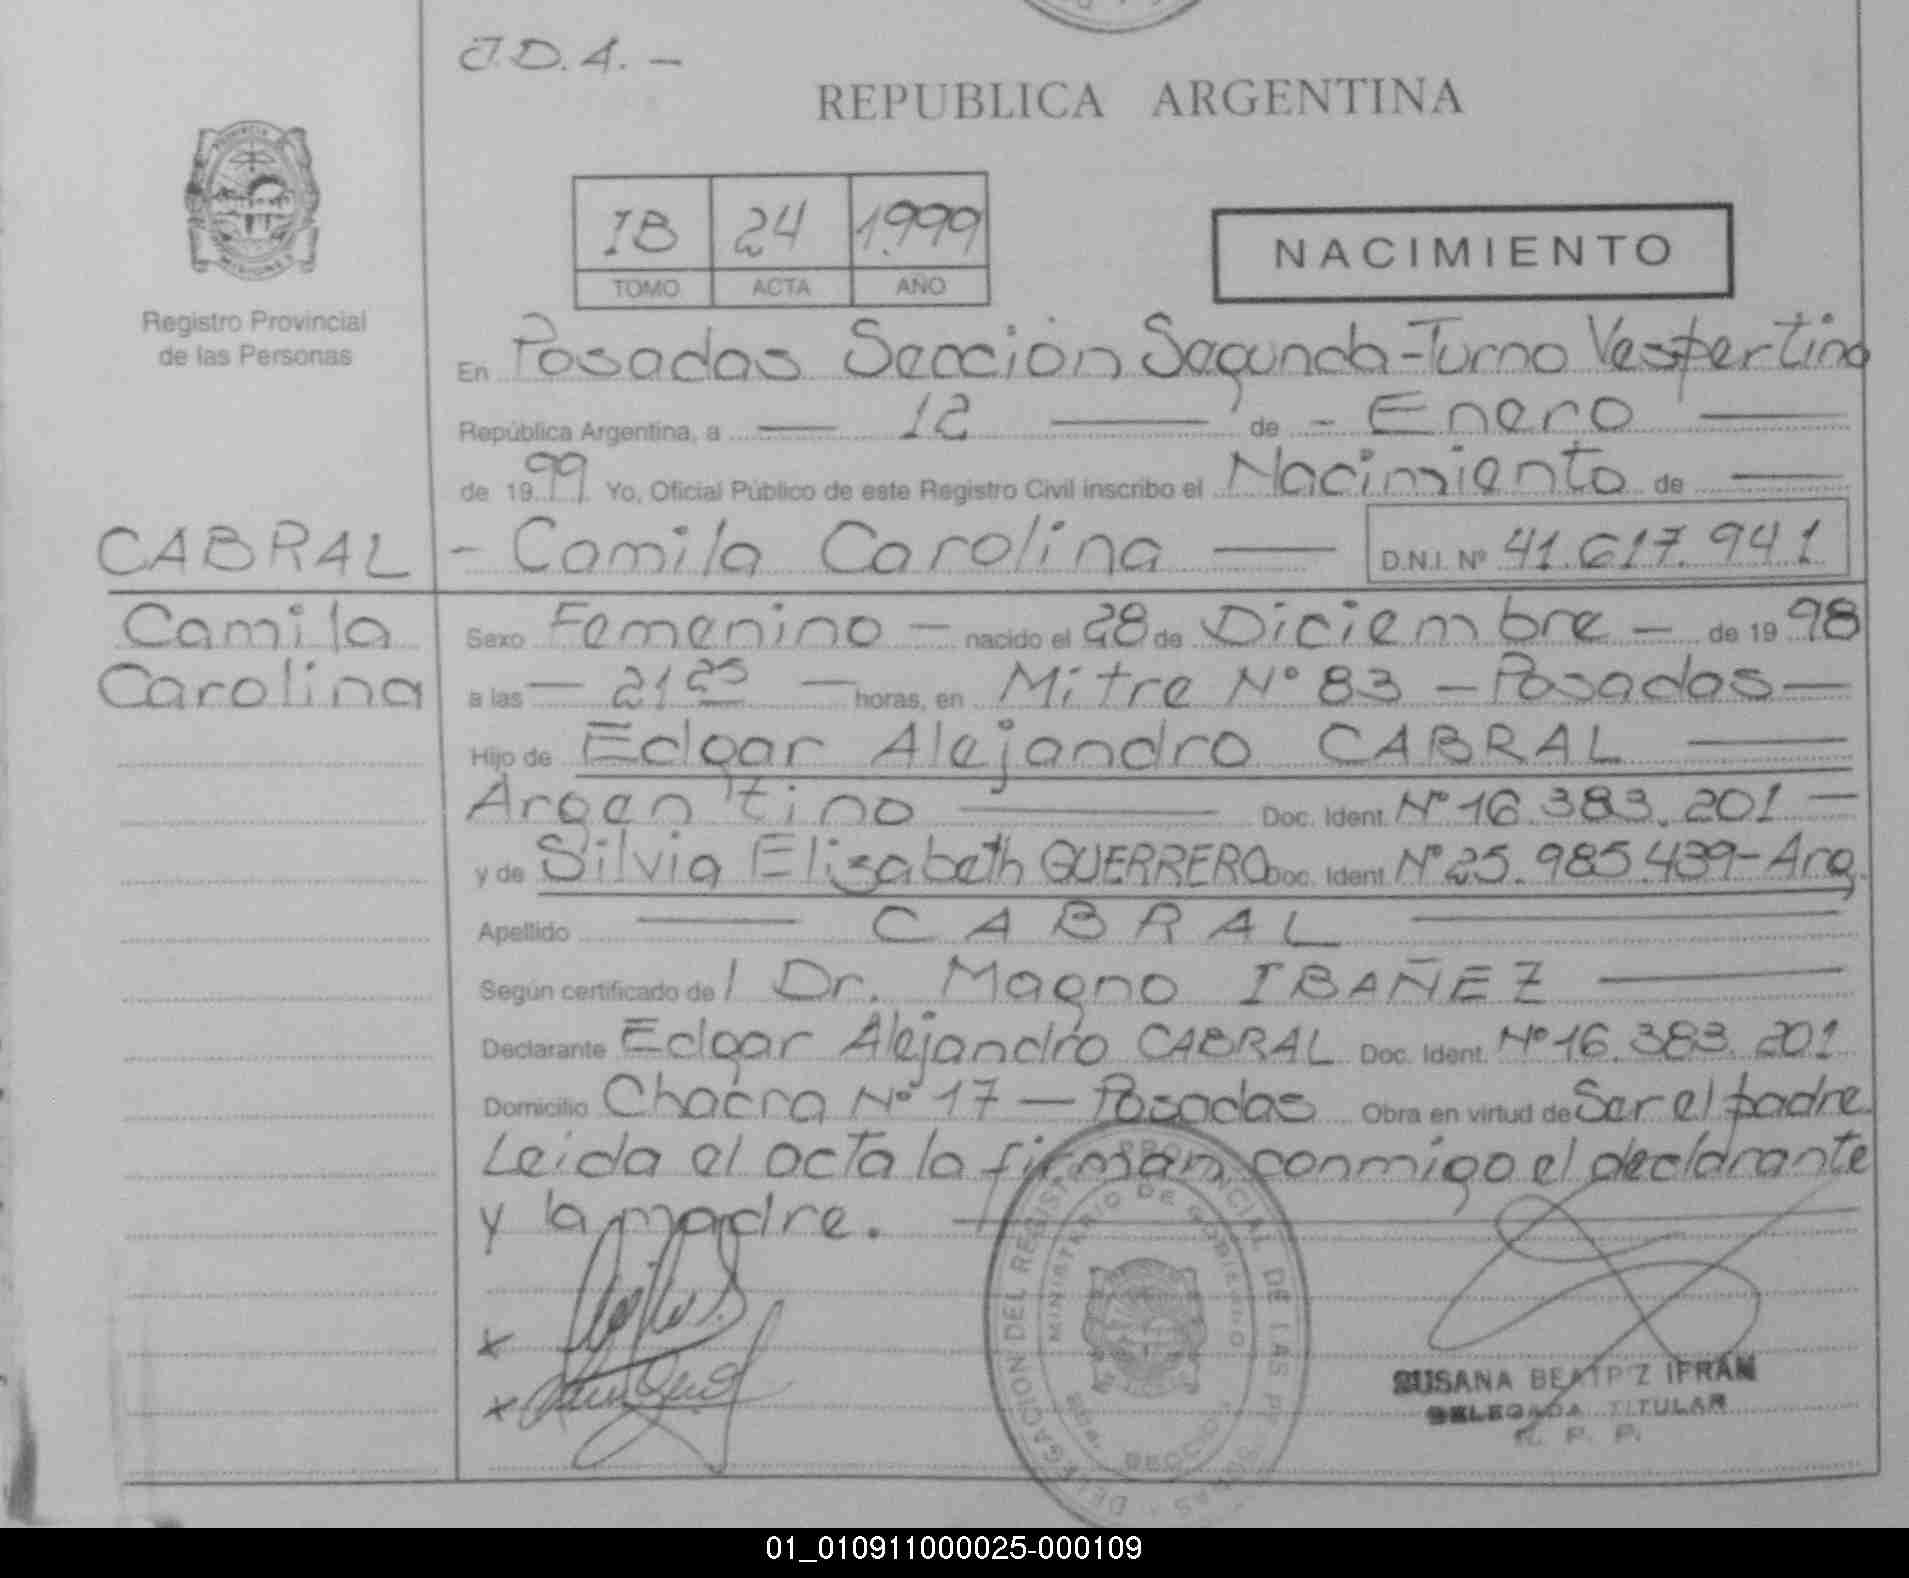 J.D.A. -
REPUBLICA ARGENTINA
IB 24 1999
TOMO ACTA AÑO
NACIMIENTO
Registro Provincial
de las Personas
En Posadas Sección Segunda - Turno Vespertino
República Argentina, a — 12 — de - Enero —
de 1999 Yo, Oficial Público de este Registro Civil inscribo el Nacimiento de —
CABRAL - Camila Carolina — D.N.I. Nº 41.617.941
Camila
Carolina
Sexo Femenino — nacido el 28 de Diciembre — de 1998
a las — 21 25 — horas, en Mitre Nº 83 — Posadas —
Hijo de Edgar Alejandro CABRAL —
Argentino — Doc. Ident. Nº 16.383.201 —
y de Silvia Elizabeth GUERRERO Doc. Ident. Nº 25.985.439 - Arg.
Apellido — CABRAL —
Según certificado de l Dr. Magno IBAÑEZ —
Declarante Edgar Alejandro CABRAL Doc. Ident. Nº 16.383.201
Domicilio Chacra Nº 17 — Posadas Obra en virtud de Ser el padre.
Leida el acta la firman conmigo el declarante
y la madre. —
DELEGACION DEL REGISTRO PROVINCIAL DE LAS PERSONAS
MINISTERIO DE GOBIERNO
SUSANA BEATRIZ IFRAN
DELEGADA TITULAR
R. P. P.
01_010911000025-000109